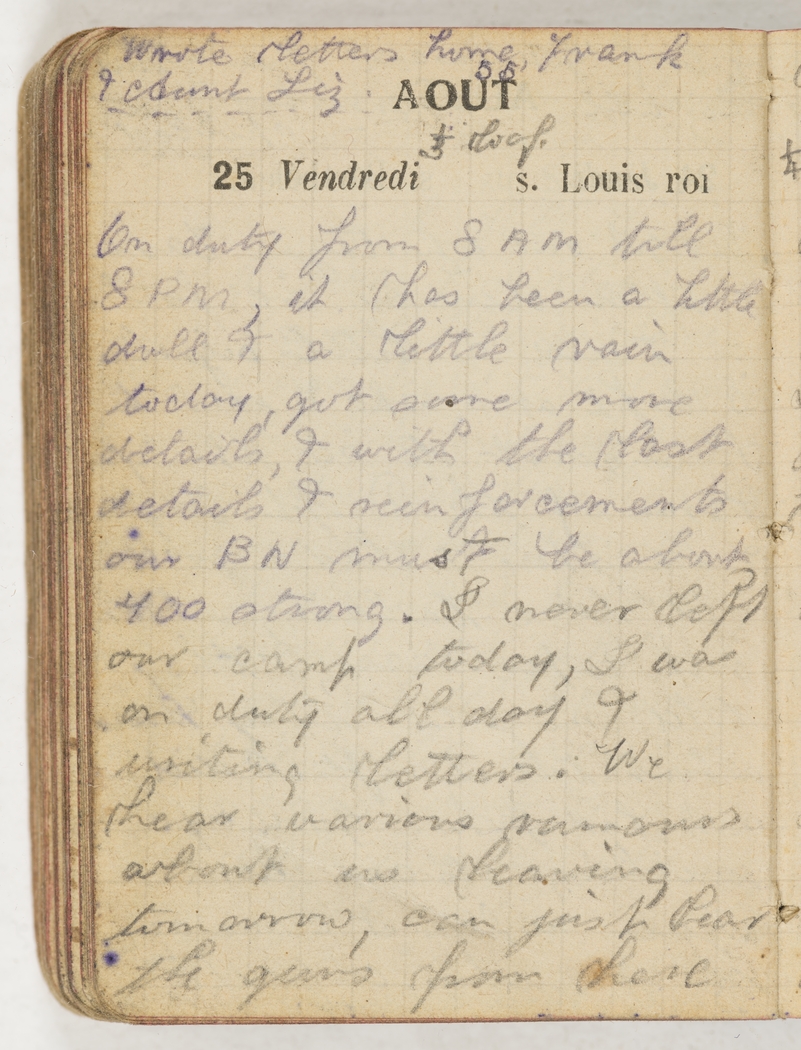 Wrote letters home, Frank
& Aunt Liz. 55
AOUT
1/3 loaf.
25 Vendredi s. Louis roi
On duty from 8 AM till
8 PM, it has been a little
dull & a little rain
today, got some more
details, & with the last
details & reinforcements
our BN must be about
400 strong. I never left
our camp today, I was
on duty all day &
writing letters. We
hear various rumours
about us leaving
tomorrow, can just hear
the guns from here